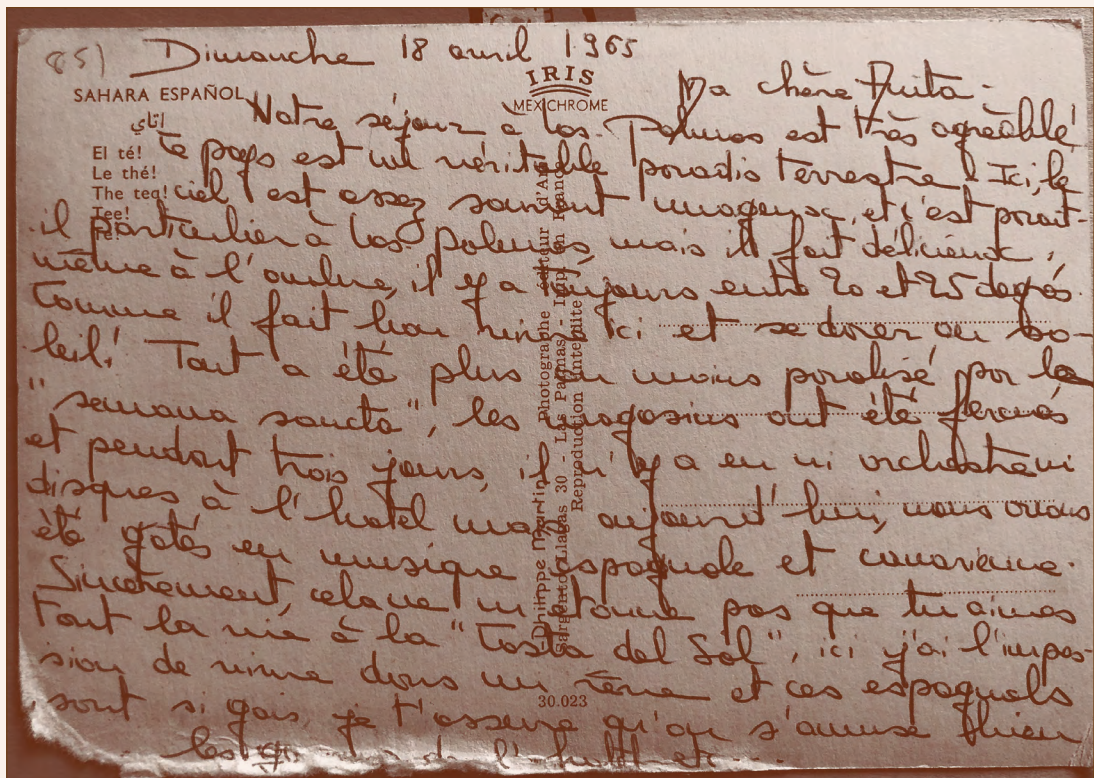 85)
Dimanche 18 avril 1965
IRIS
MEXICHROME
SAHARA ESPAÑOL
اتاي
El té!
Le thé!
The tea!
Tee!
Te!
Ma chère
Notre séjour à Las Palmas est très agréable!
Ce pays est un véritable paradis terrestre! Ici, le
ciel est assez souvent nuageux, et c'est paraît-
il particulier à Las Palmas, mais il fait délicieux,
même à l'ombre, il y a toujours entre 20 et 25 degrés.
Comme il fait bon vivre ici et se dorer au so-
leil! Tout a été plus ou moins paralysé par la
"semana sancta", les magasins ont été fermés
et pendant trois jours, il n'y a eu ni orchestre ni
disques à l'hotel mais aujourd'hui, nous avons
été gatés en musique espagnole et canarienne.
Sincèrement, cela ne m'étonne pas que tu aimes
tant la vie à la "Costa del Sol", ici j'ai l'impres-
sion de vivre dans un rêve et ces espagnols
sont si gais, je t'assure qu'on s'amuse bien
Philippe Martin Photographe éditeur d'Art
Sargento Llagas 30 - Las Palmas - Imp. en France
Reproduction interdite
30.023